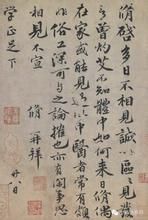 脩啟多日不相見誠以區區見發
言曾灼艾不知體中如何來日脩偶
在家或能見過此中醫者常有頗
非俗工深可與之論搉也亦有閑事思
相見不宣 脩再拜
廿八日
學正足下